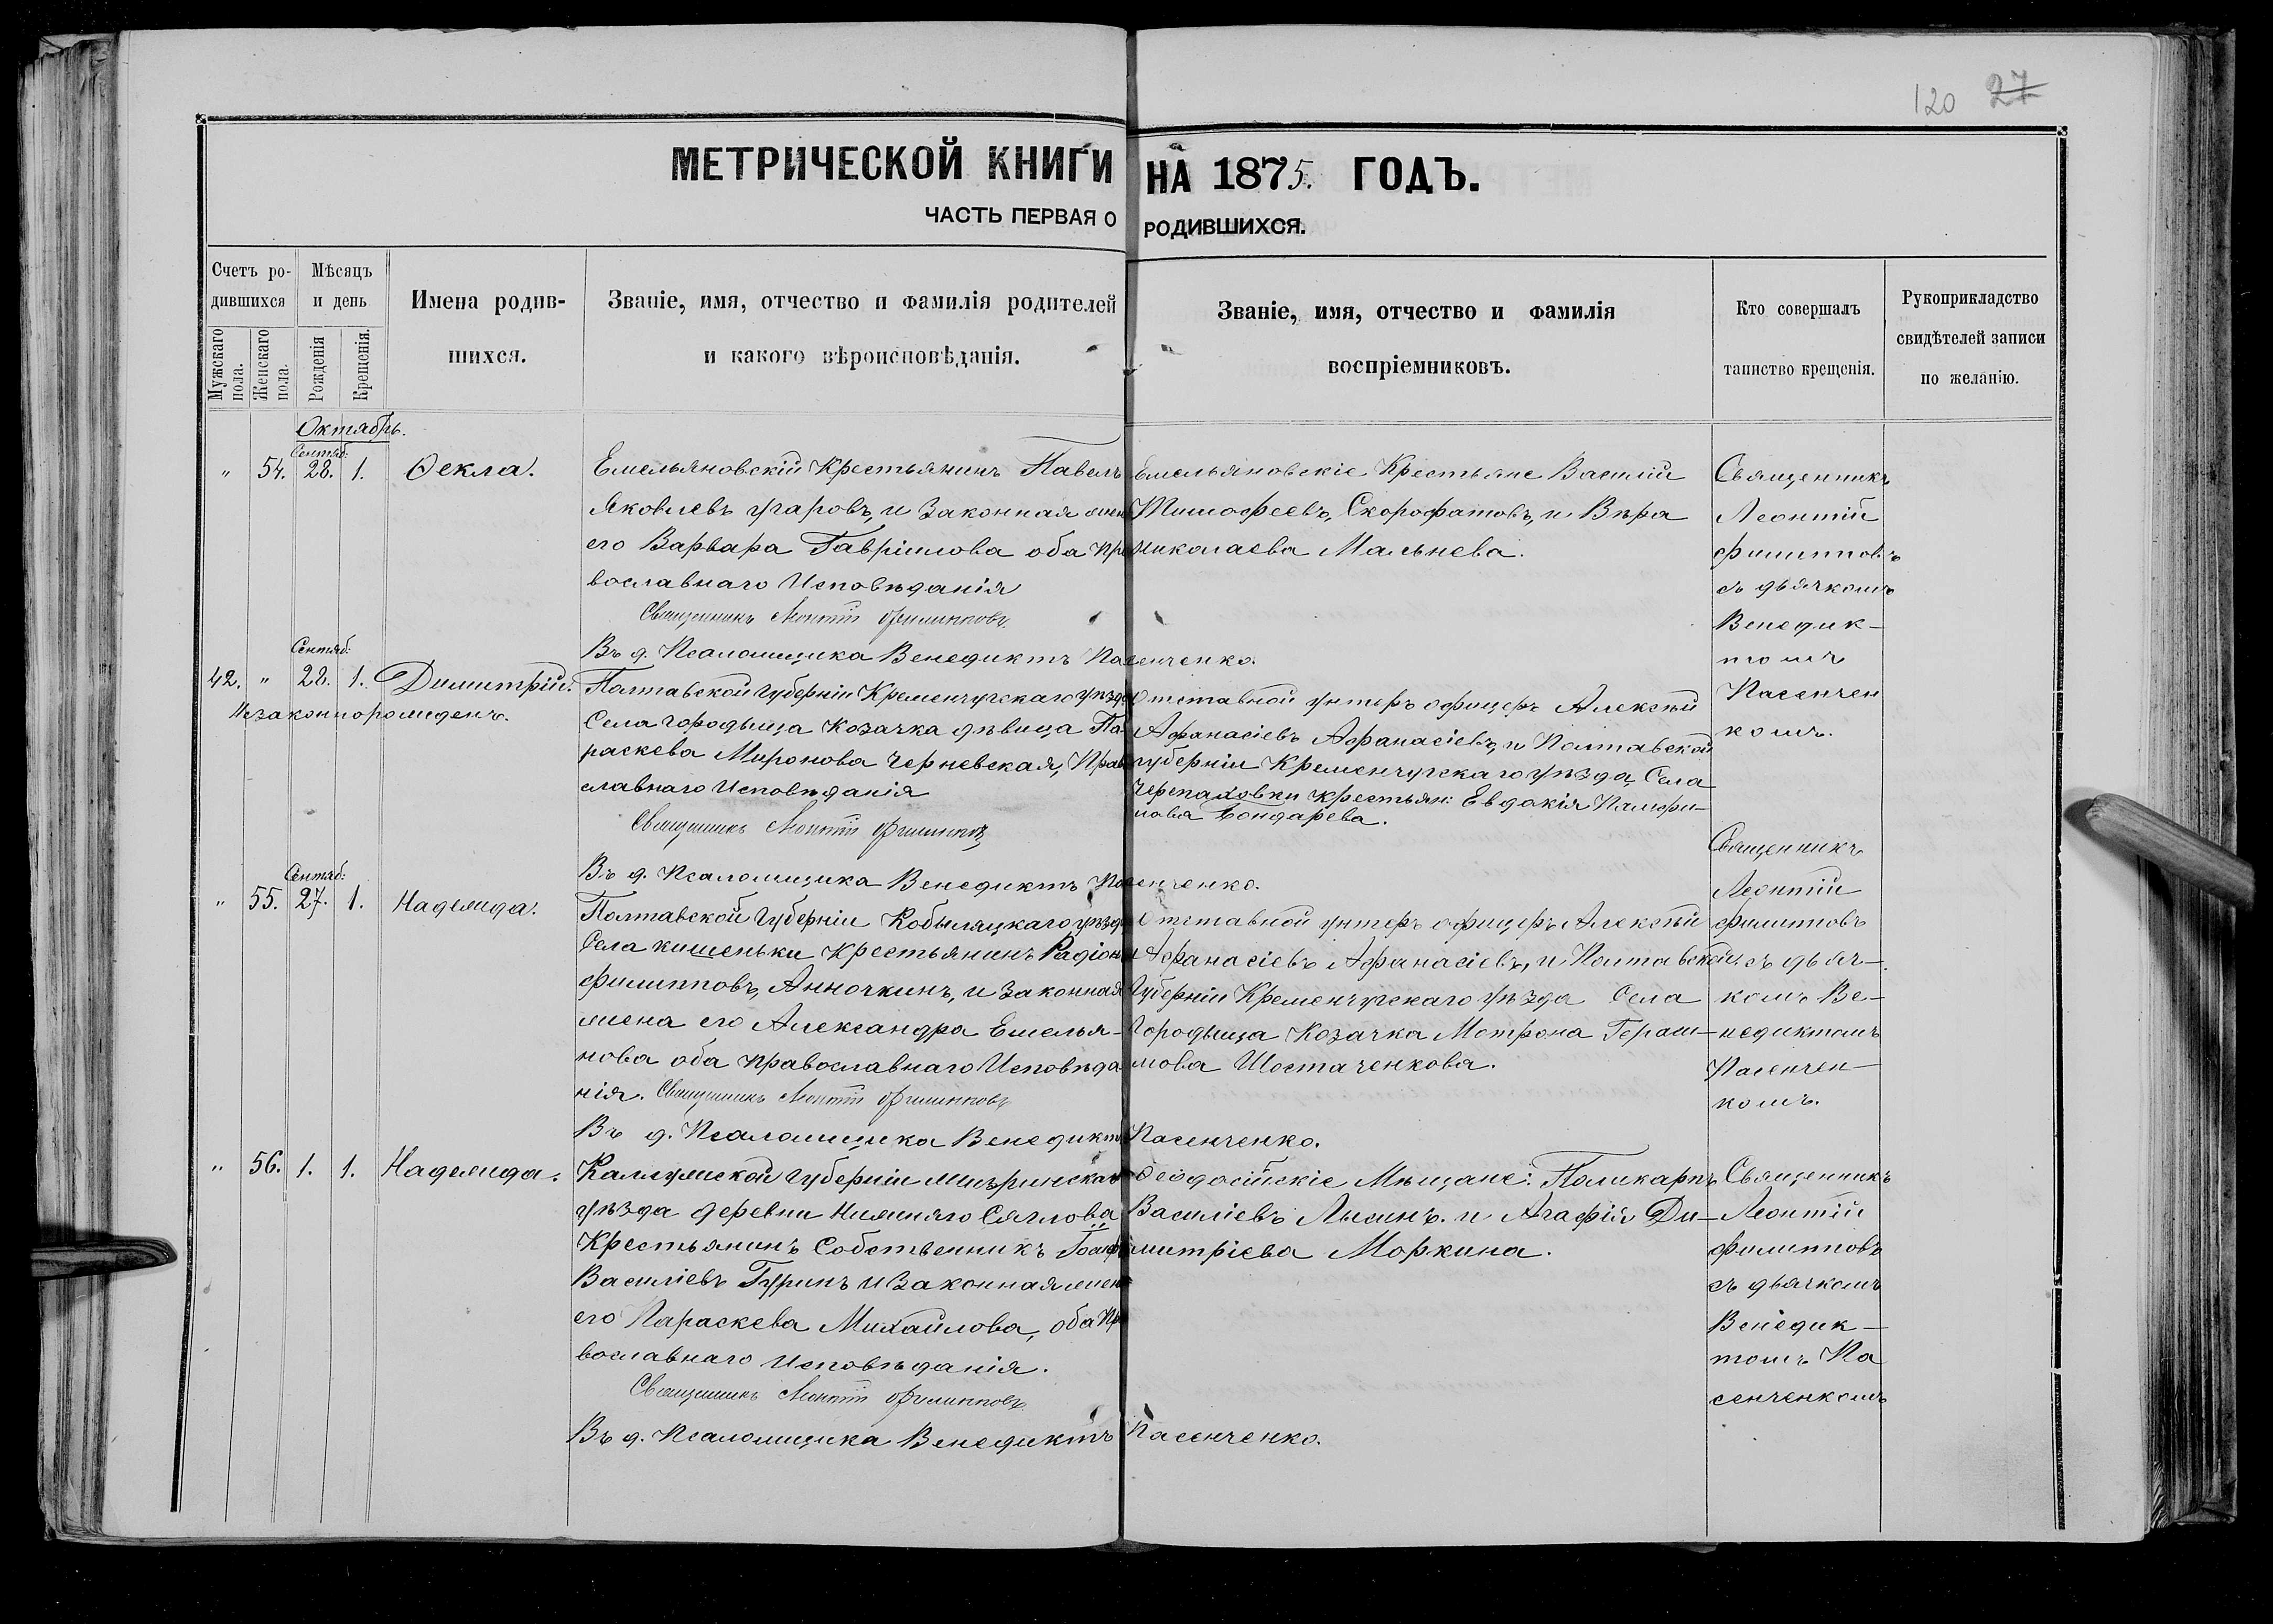 120 27
МЕТРИЧЕСКОЙ КНИГИ НА 1875. ГОДЪ.
ЧАСТЬ ПЕРВАЯ О РОДИВШИХСЯ.
Счетъ ро-
дившихся
Мужскаго пола.
Женскаго пола.
Мѣсяцъ
и день
Рожденія
Крещенія.
Имена родив-
шихся.
Званіе, имя, отчество и фамилія родителей
и какого вѣроисповѣданія.
Званіе, имя, отчество и фамилія
воспріемниковъ.
Кто совершалъ
таинство крещенія.
Рукоприкладство
свидѣтелей записи
по желанію.
Октябрь.
Сентяб:
" 54. 28. 1. Ѳекла.
Емельяновскій Крестьянинъ Павелъ
Яковлевъ Угаровъ, и Законная жен
его Варвара Гавріилова оба Пра
вославнаго Исповѣданія
Священникъ Леонтій Филипповъ.
Въ д. Псаломщика Венедиктъ Пасенченко.
Емельяновскіе Крестьяне Василій
Тимофеевъ, Скорофатовъ, и Вѣра
Николаева Мальнева.
Священникъ
Леонтій
Филипповъ
съ дьячкомъ
Венедик-
томъ
Пасенчен
комъ.
Сентяб:
42. " 28. 1. Димитрій.
Незаконнорожденъ.
Полтавской Губерніи Кременчугскаго уѣзда
Села Городыща Козачка дѣвица Па-
раскева Миронова Черневская, Право
славнаго Исповѣданія
Священникъ Леонтій Филипповъ
Въ д. Псаломщика Венедиктъ Пасенченко.
Отставной унтеръ офицеръ Алексѣй
Афанасіевъ Афанасіевъ, и Полтавской
губерніи Кременчугскаго уѣзда, Села
Черепаховки крестьян: Евдокія Памфи-
лова Бондарева.
Сентяб:
" 55. 27. 1. Надежда.
Полтавской Губерніи Кобыляцкаго уѣзда
Села Кишеньки Крестьянинъ Радіонъ
Филипповъ, Анночкинъ, и Законная
жена его Александра Емелья-
нова оба Православнаго Исповѣда
нія. Священникъ Леонтій Филипповъ
Въ д. Псаломщика Венедиктъ Пасенченко.
Отставной унтеръ офицеръ Алексѣй
Афанасіевъ Афанасіевъ, и Полтавской
Губерніи Кременчугскаго уѣзда Села
Городыща Козачка Мотрона Гераси-
мова Шостаченкова.
Священникъ
Леонтій
Филипповъ
съ дьяч-
комъ Ве-
недиктомъ
Пасенчен-
комъ.
" 56. 1. 1. Надежда.
Калужской Губерніи
уѣзда деревни Нижняго Сяглова
Крестьянинъ Собственникъ
Василіевъ Гуринъ и Законная жена
его Параскева Михайлова, оба Пра
вославнаго Исповѣданія.
Священникъ Леонтій Филипповъ.
Въ д. Псаломщика Венедиктъ Пасенченко.
Ѳеодосійскіе Мѣщане: Поликарпъ
Василіевъ Лысинъ. и Агафія Ди-
митріева Моркина.
Священникъ
Леонтій
Филипповъ
съ дьячкомъ
Венедик-
томъ Па
сенченкомъ